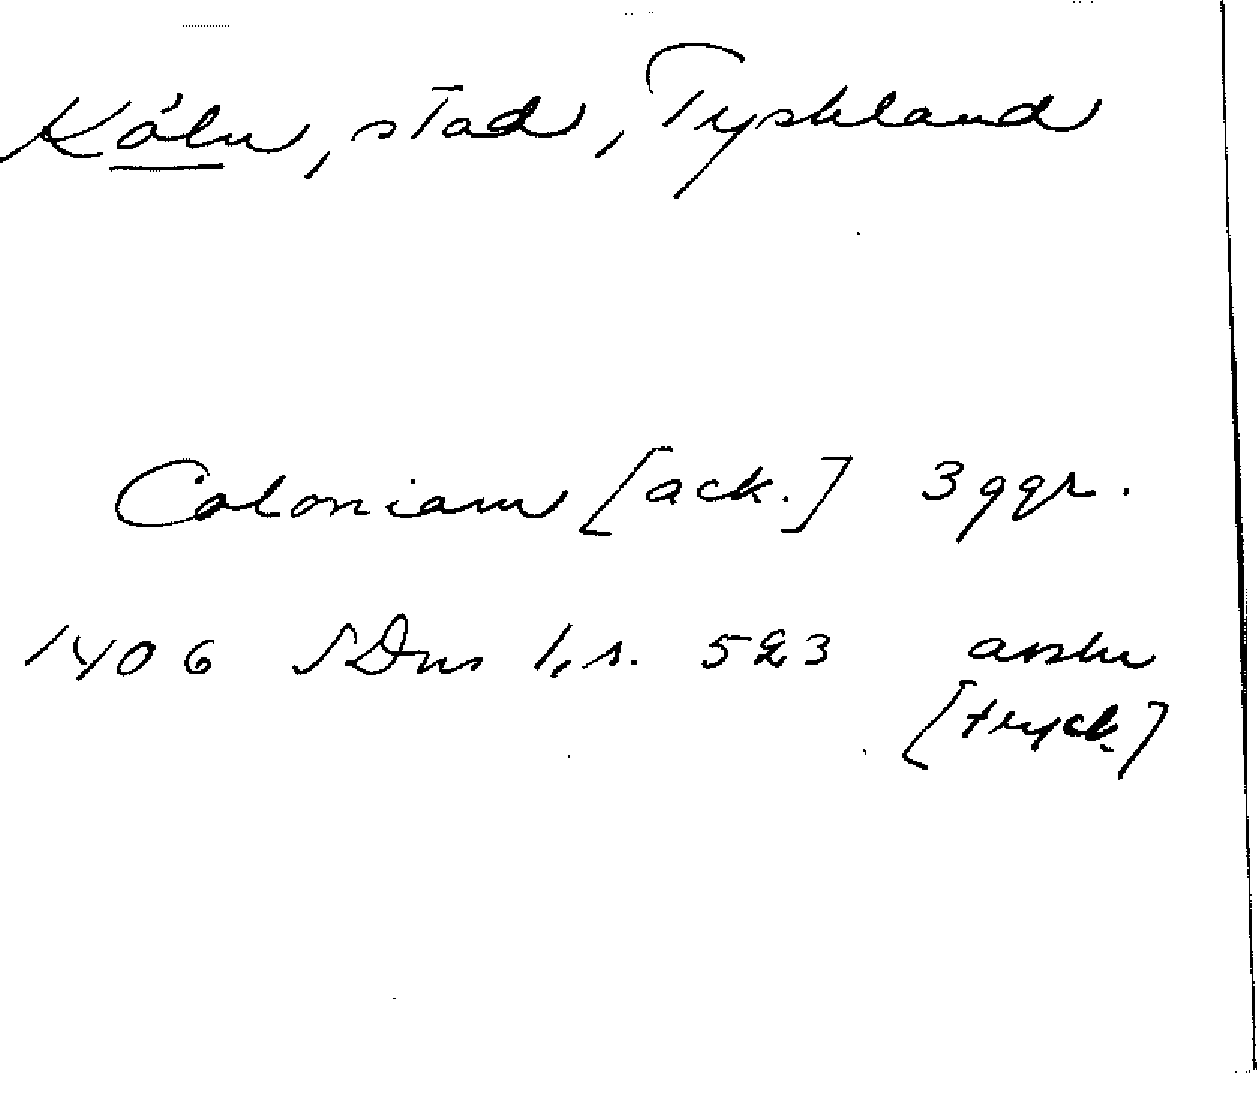 Köln, stad, Tyskland
Coloniam [ack.] 3 ggr.
1406 SDns 1, s. 523 avskr
[tryck]